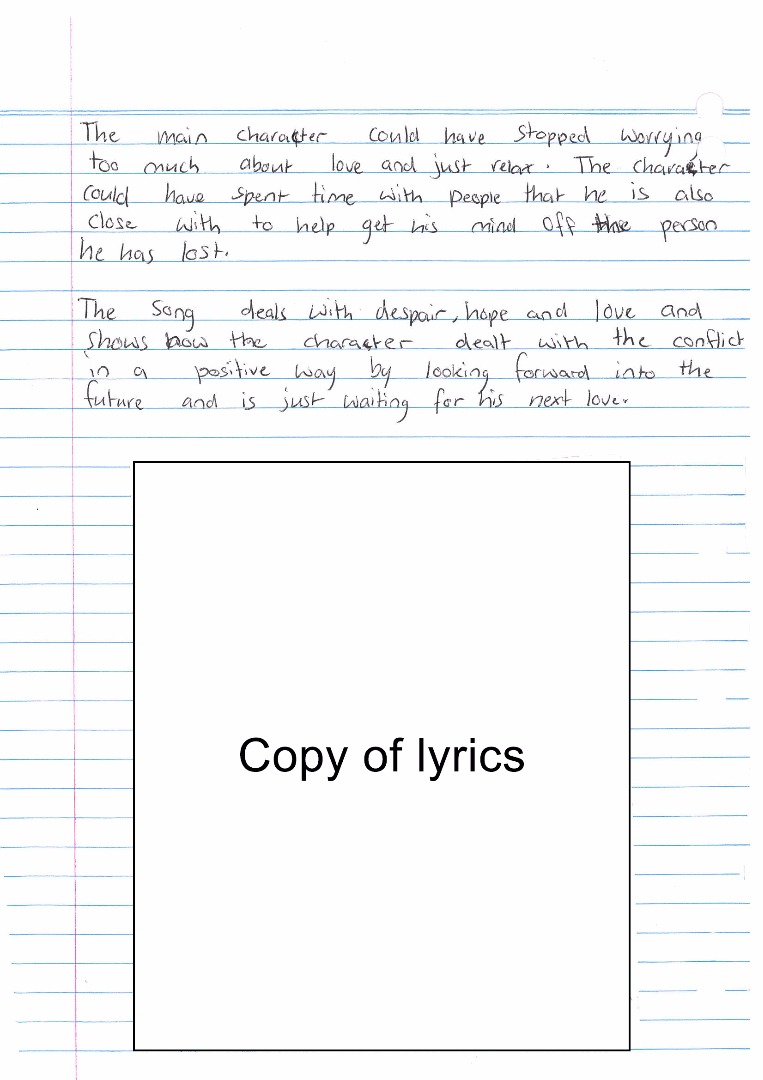 The main character could have stopped worrying
too much about love and just relax. The character
could have spent time with people that he is also
close with to help get his mind off the person
he has lost.
The song deals with despair, hope and love and
shows how the character dealt with the conflict
in a positive way by looking forward into the
future and is just waiting for his next love.
Copy of lyrics